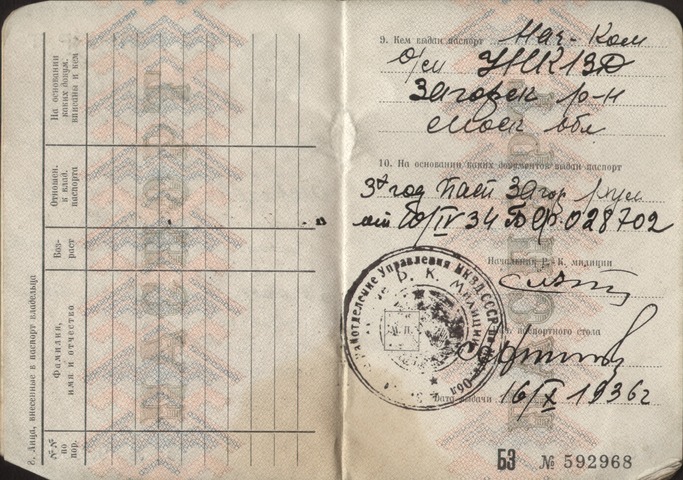 8. Лица, внесенные в паспорт владельца
№№ по пор.
Фамилия, имя и отчество
Возраст
Отношен. к влад. паспорта
На основании каких докум. вписаны и кем
9. Кем выдан паспорт Нач-Ком
УНКВД
Загорск р-н
Моск обл
10. На основании каких документов выдан паспорт
3х год Паст Загор
от 10/IV 34 БФ 028702
Начальник Р.-К. милиции
паспортного стола
Дата выдачи 16/X 1936г
Управления НКВД СССР
Р. К. Милиции
М. П.
БЗ № 592968